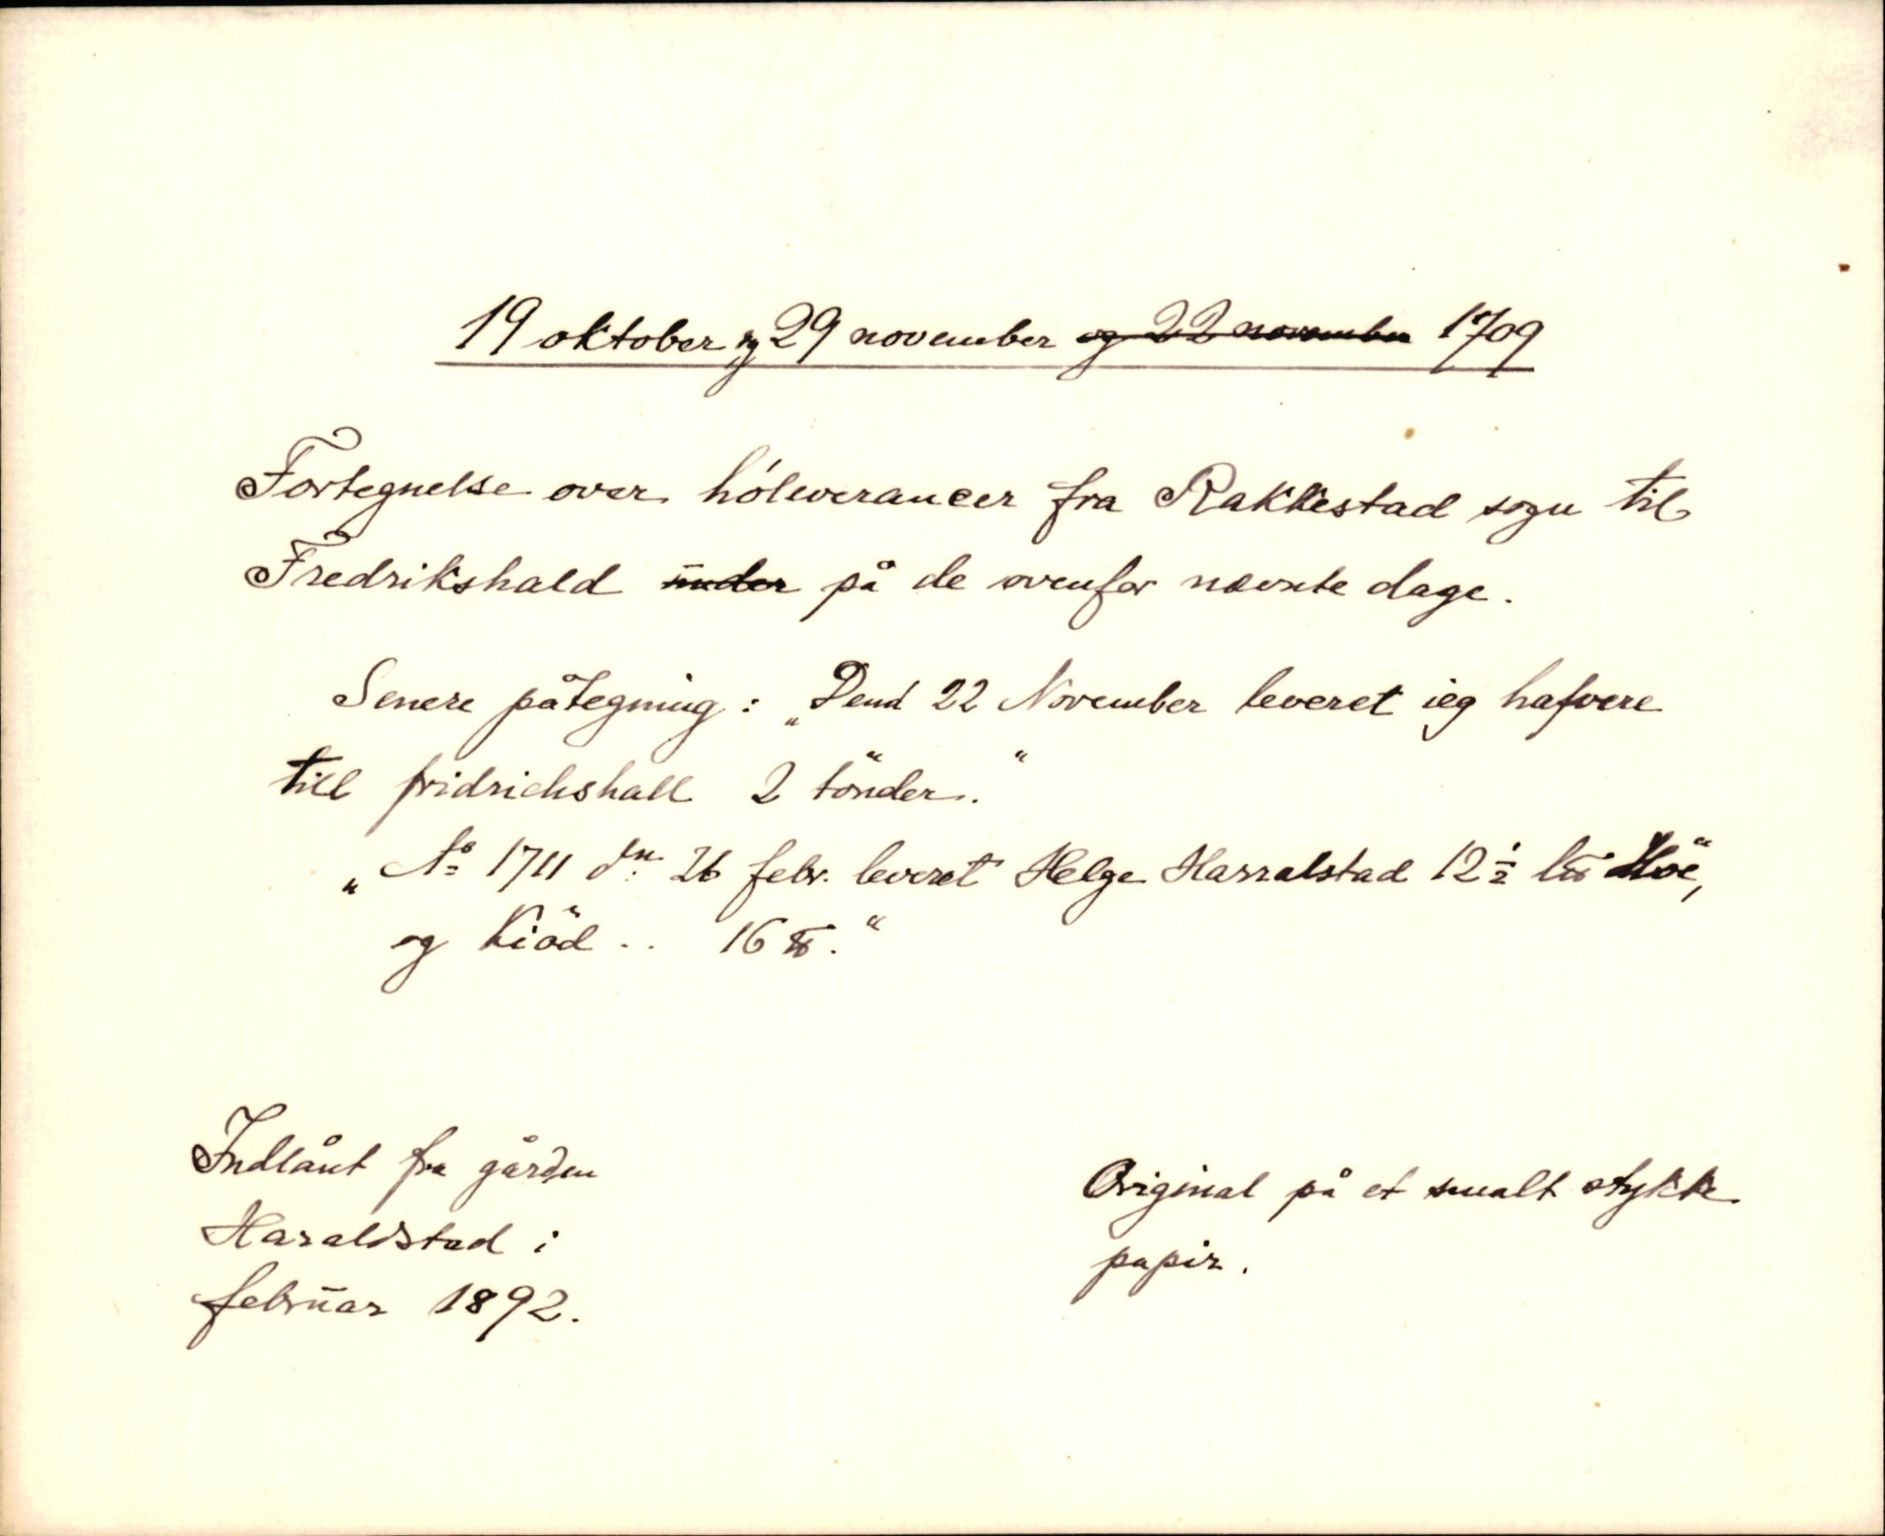 19 oktober og 29 november og 22 november 1709
Fortegnelse over høleverancer fra Rakkestad sogn til
Fredrikshald under på de ovenfor nævnte dage.
Senere påtegning: „Dend 22 November leveret ieg hafvere
till fridrichshall 2 tönder.“
„Aº 1711 dn 26 febr. leveret Helge Harralstad 12 ½ l℔ Höe,
og Kiöd .. 16 ℔.“
Indlånt fra gården
Haraldstad i
februar 1892.
Original på et smalt stykke
papir.